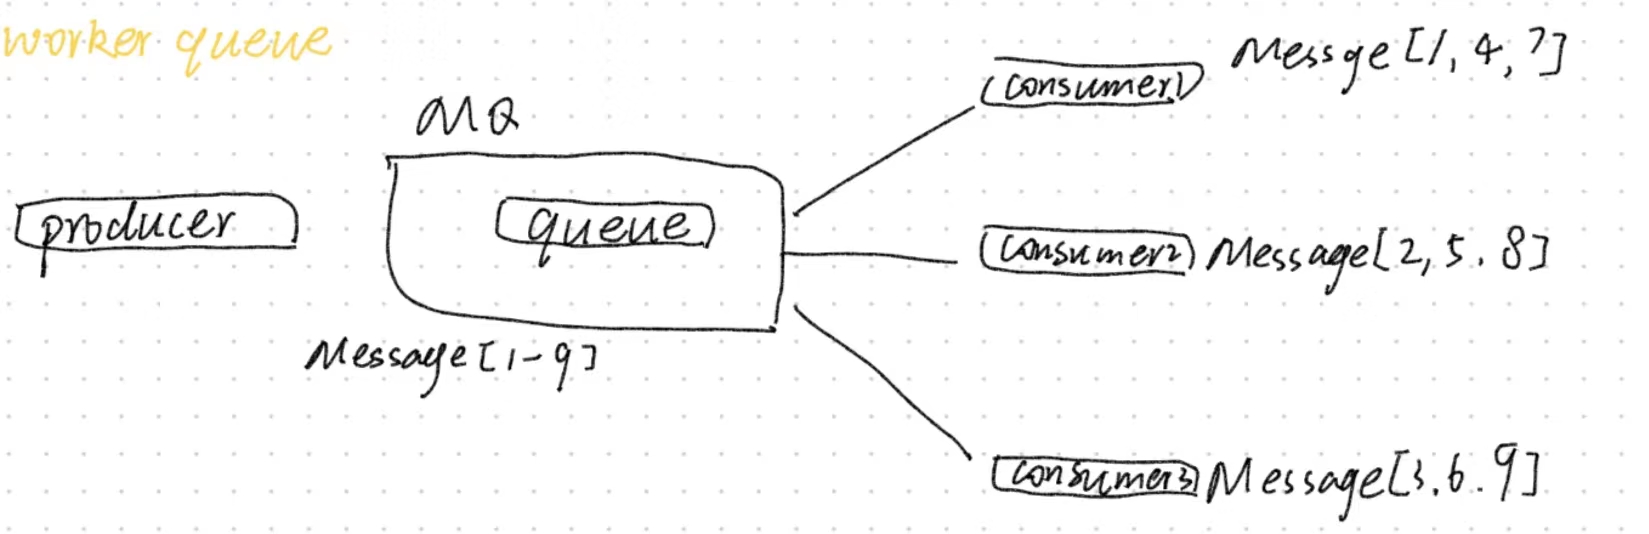 worker queue
MQ
producer
queue
Message[1-9]
consumer1
Messge[1,4,7]
consumer2
Message[2,5.8]
consumer3
Message[3.6.9]